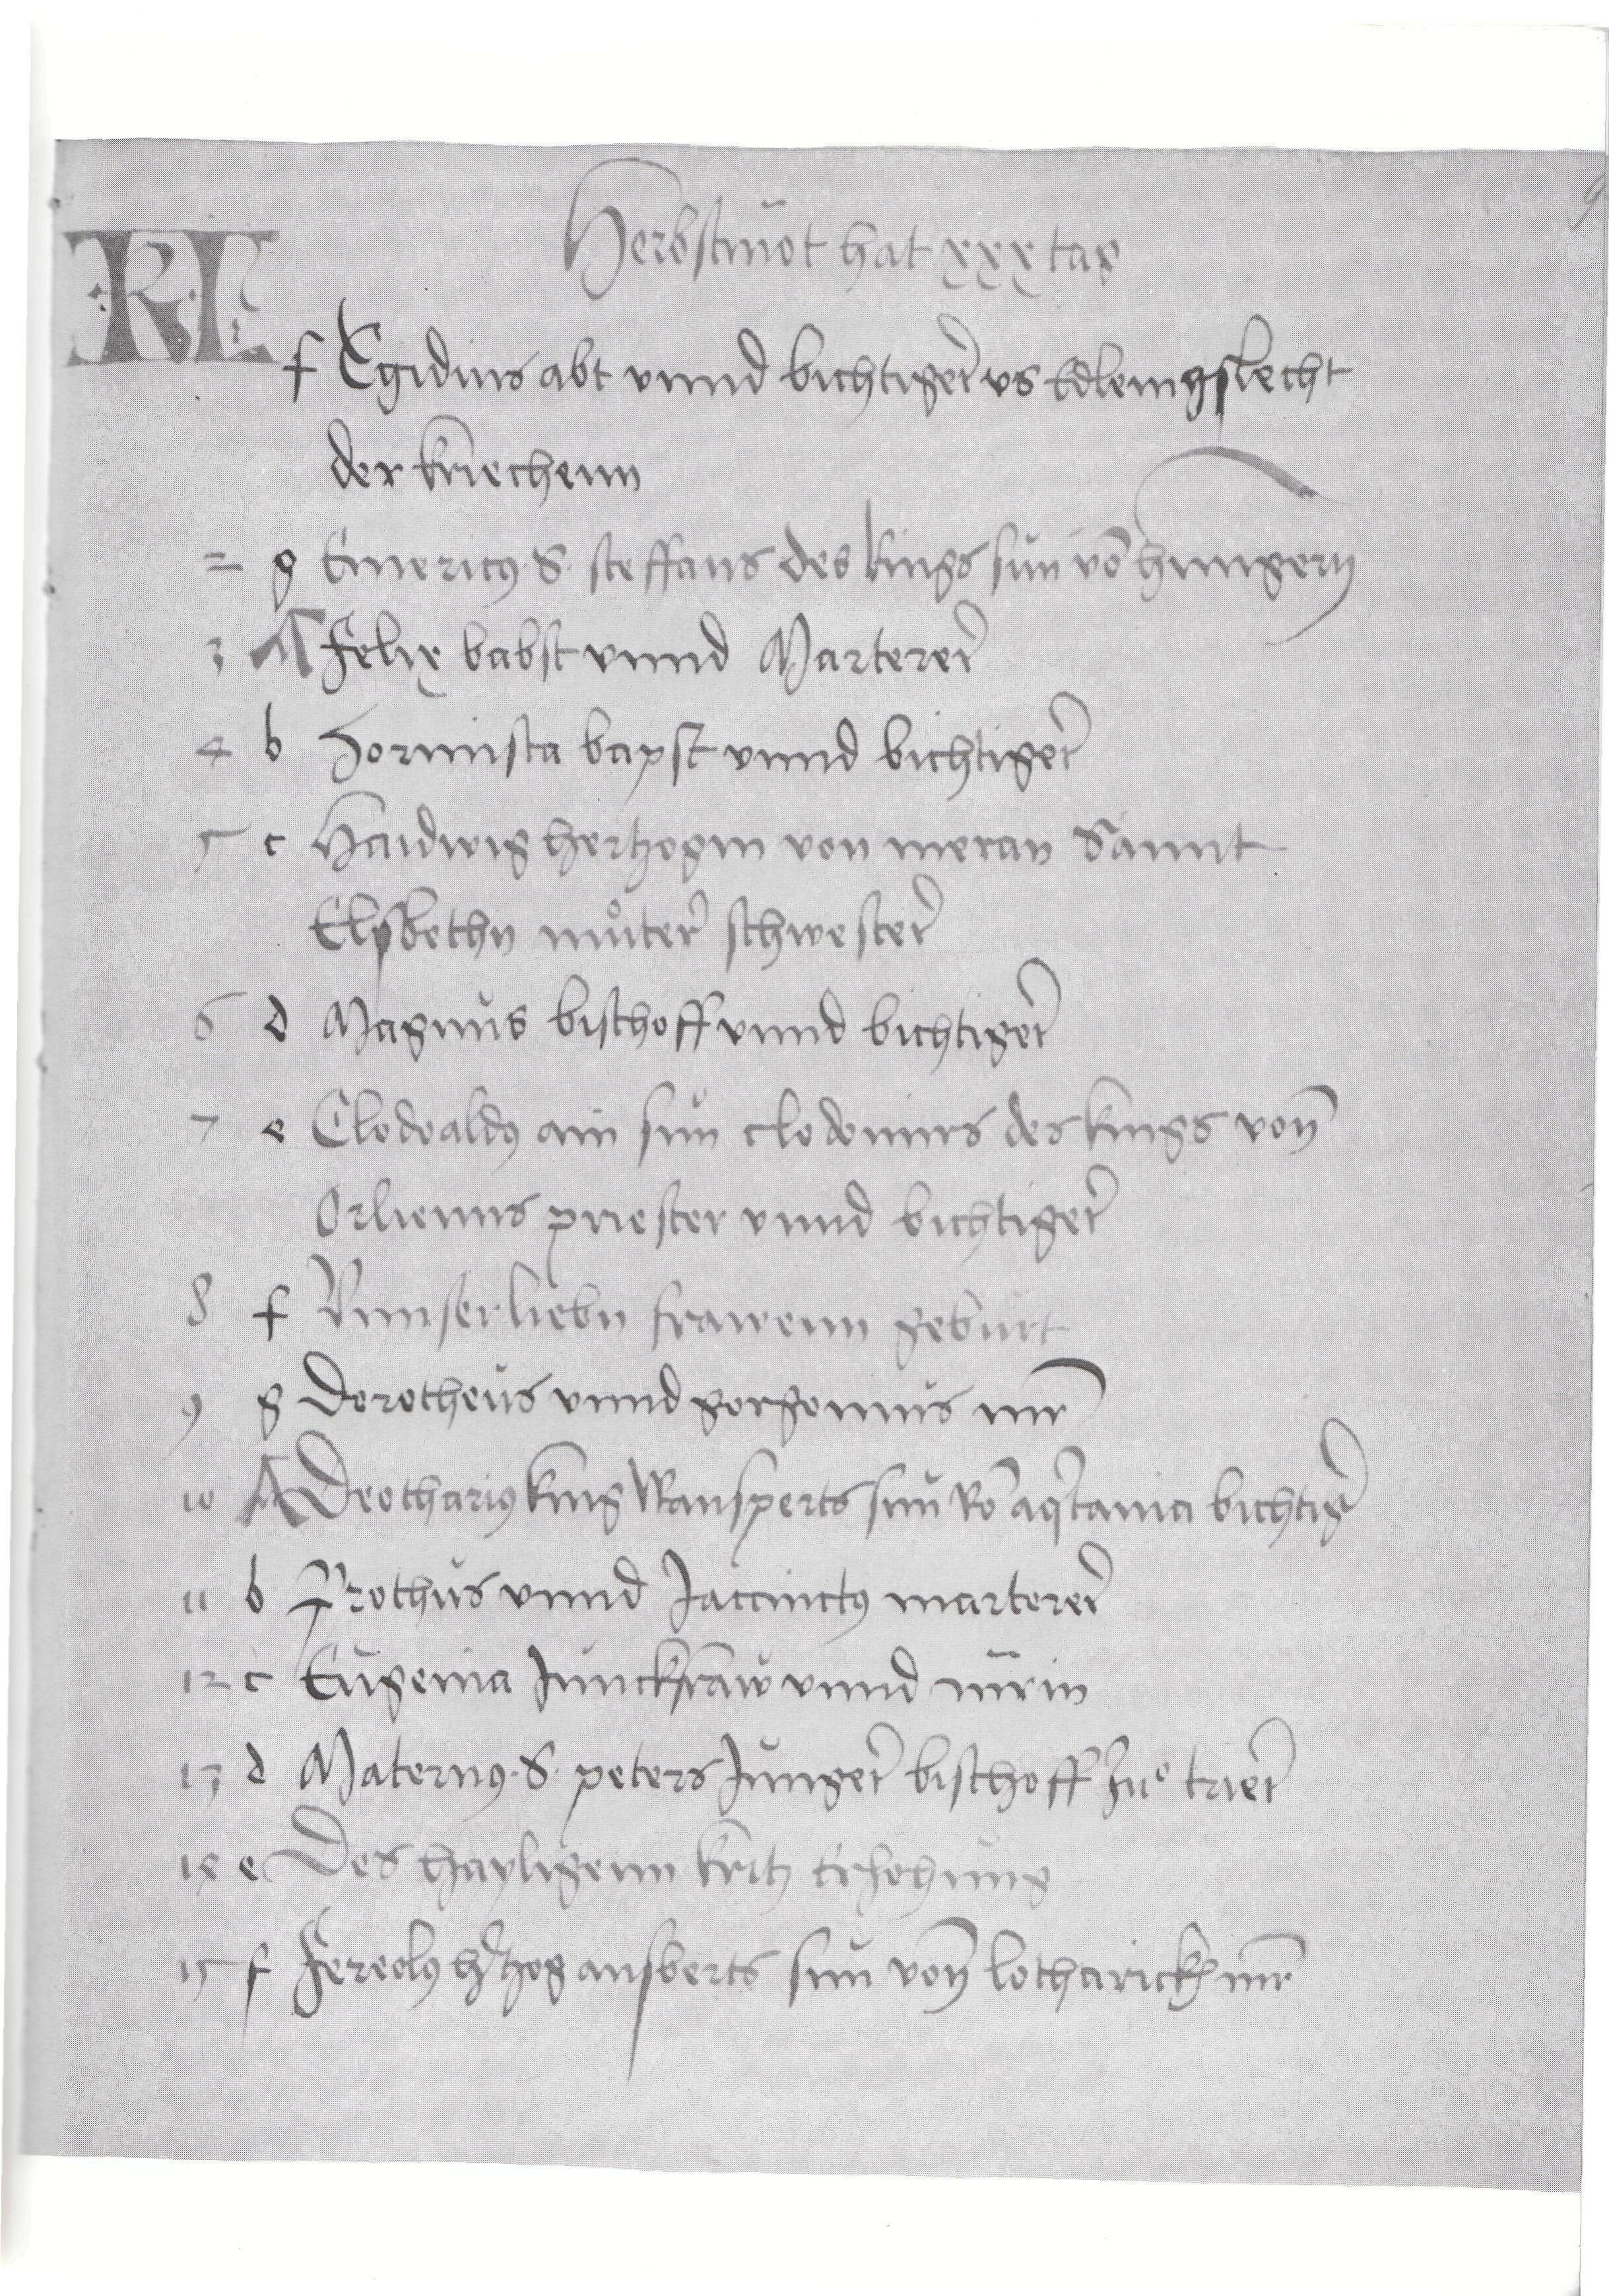 Herbstmõt hat xxx tag
KL
f Egidius abt vnnd bichtiger vs Edlem gslecht
der kriechenn
2 g Emericus S. steffans des kings sun võ hungern
3 A Felix babst vnnd Marterer
4 b Hormista bapst vnnd bichtiger
5 c Haidwig hertzogin von meran Sannt
Elsbethn můter schwester
6 d Magnus bischoff vnnd bichtiger
7 e Clodoaldus ain sun clodomirs des kings von
Orlienns priester vnnd bichtiger
8 f Vnnser liebn frawenn geburt
9 g Dorotheus vnnd gorgonius mr
10 A Deotharius king Ransperts sun võ aqtania bichtigr
11 b Prothus vnnd Jaccinctus marterer
12 c Eugenia Junckfraw vnnd mrin
13 d Maternus S. peters Junger bischoff zuo trier
14 e Des hayligenn kritz erhohung
15 f Fereolus htzog ansberts sun von lotharickh mr